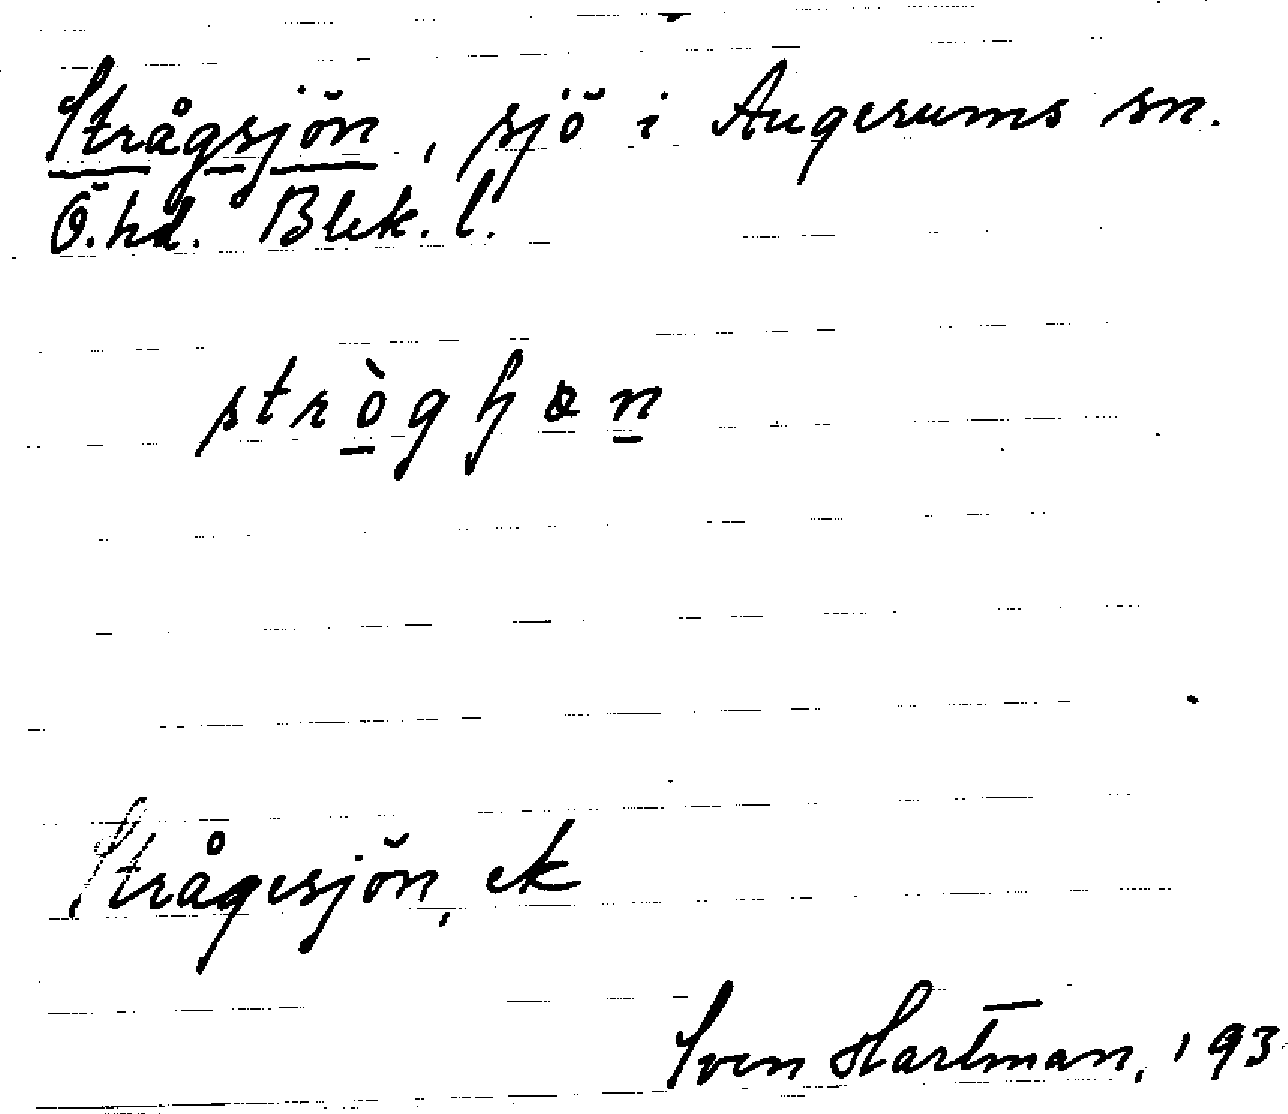 Strågsjön, sjö i Augerums sn.
Ö. hd. Blek. l.
Strågesjön, ek
Sven Hartman, 193